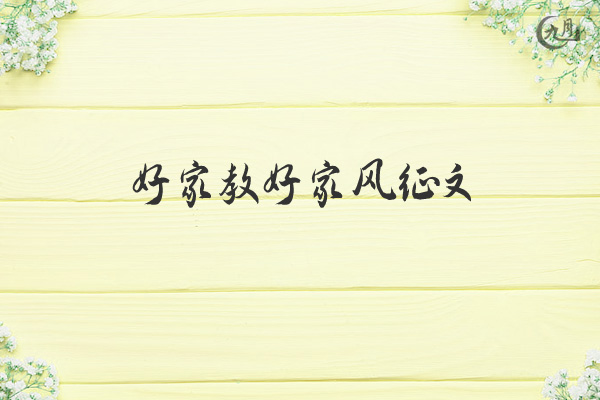 九月
好家教好家风征文